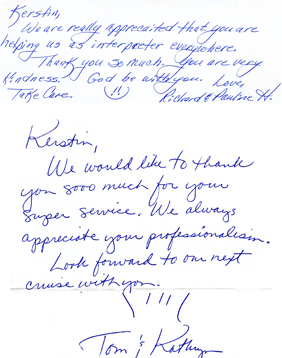 Kerstin,
We are really appreciated that you are
helping us as interpreter everywhere.
Thank you so much. You are very
kindness. God be with you. Love,
Take Care. Richard & Pauline H.
Kerstin,
We would like to thank
you sooo much for your
super service. We always
appreciate your professionalism.
Look forward to our next
cruise with you.
Tom & Kathryn